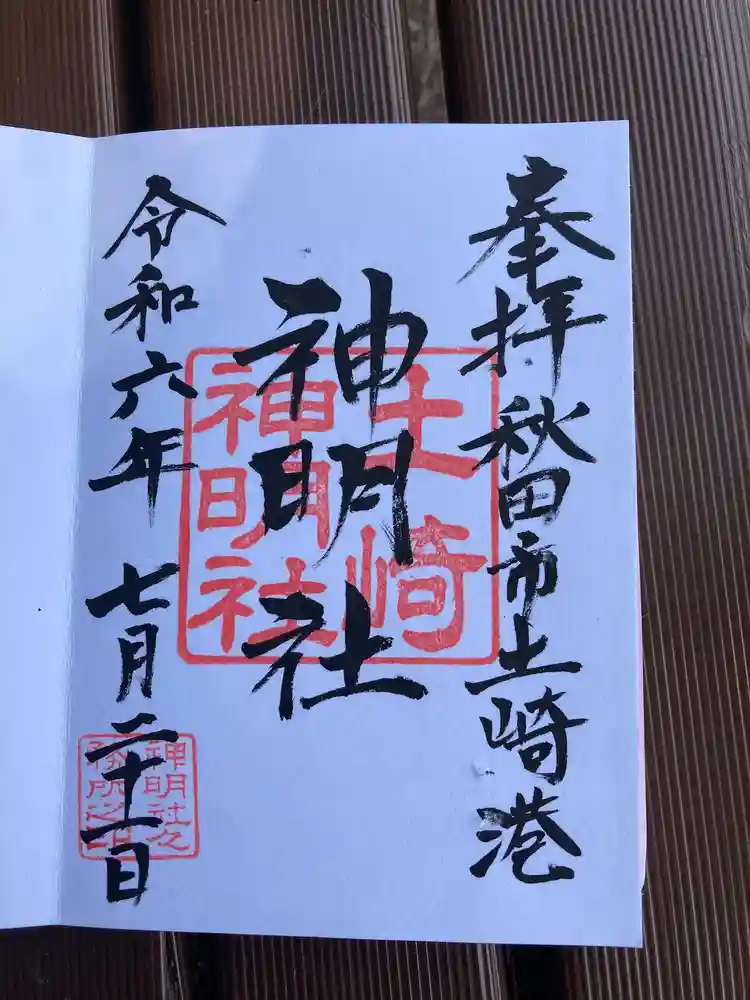 奉拝 秋田市土崎港
神明社
土崎
神明社
令和六年 七月二十一日
神明社々
務所之印